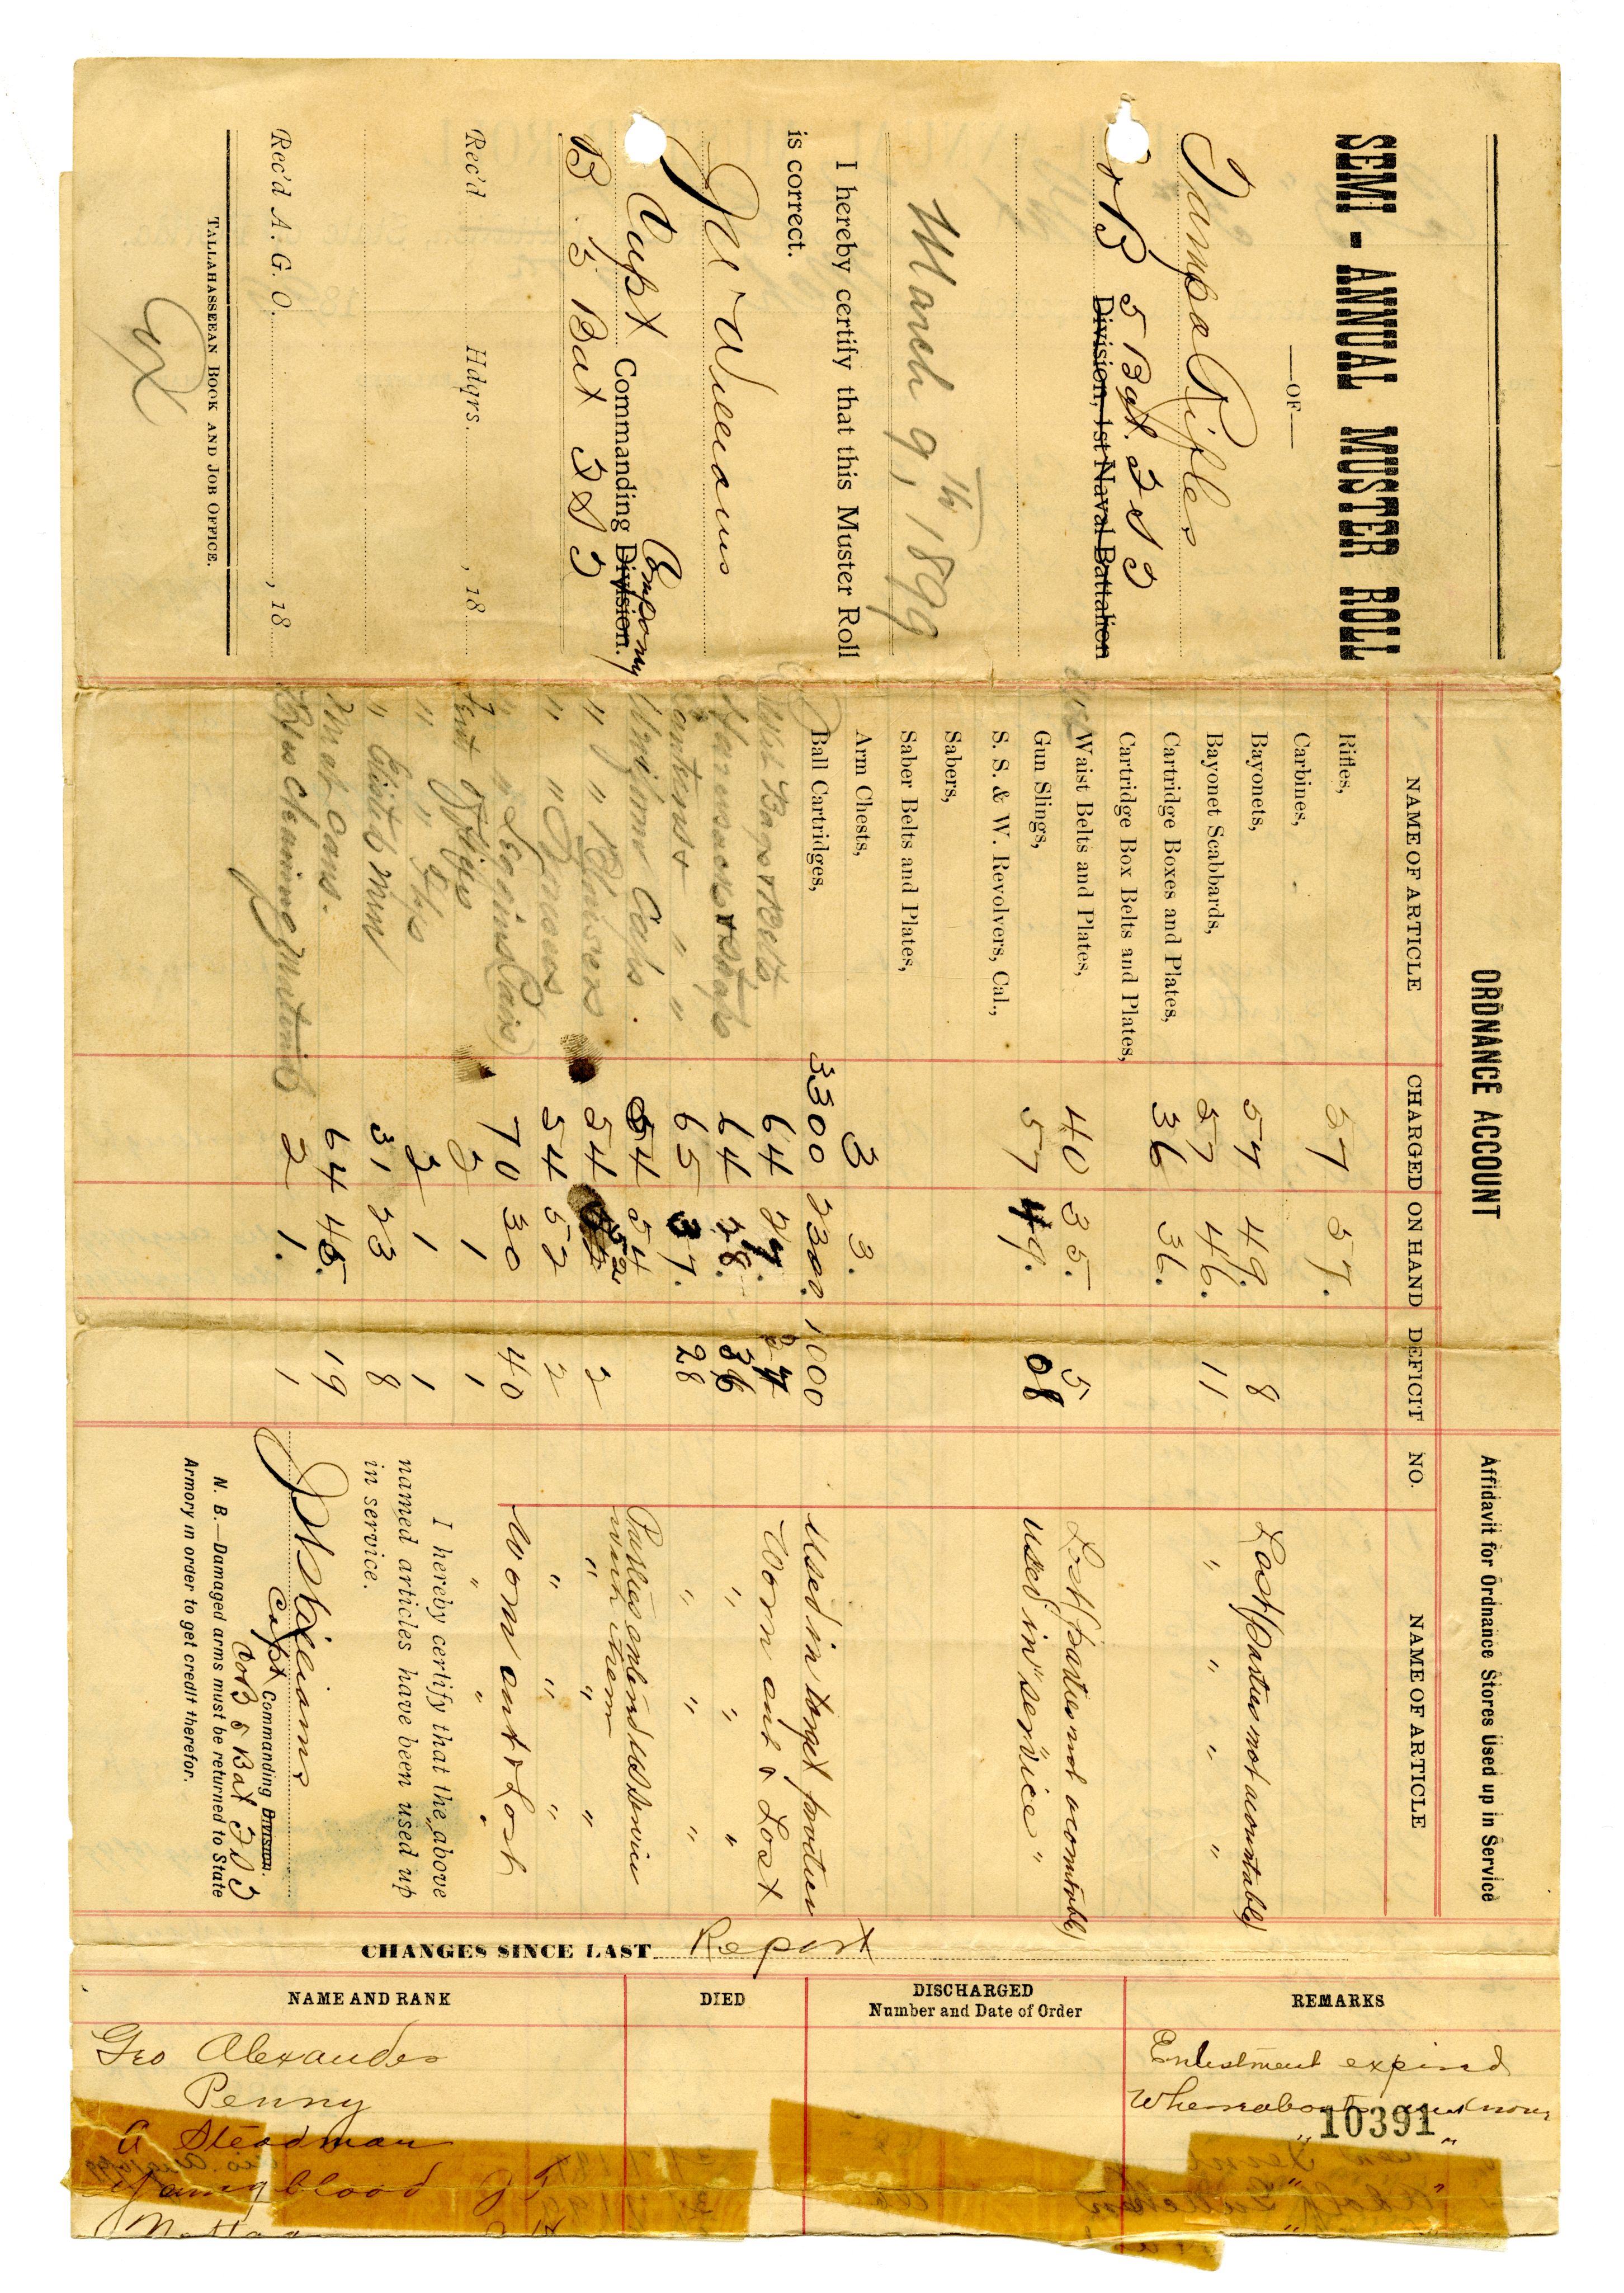 SEMI - ANNUAL MUSTER ROLL
—OF—
Tampa Rifles
B 5 Bat. F S T
Division, 1st Naval Battalion
March 9, th 1899
I hereby certify that this Muster Roll
is correct.
J W Williams
Capt Commanding Division. Company
B 5 Bat F S T
Rec'd Hdqrs. , 18
Rec'd A. G. O. , 18
TALLAHASSEEAN BOOK AND JOB OFFICE.
ORDNANCE ACCOUNT
NAME OF ARTICLE CHARGED ON HAND DEFICIT
Rifles, 57 57.
Carbines,
Bayonets, 57 49. 8
Bayonet Scabbards, 57 46. 11
Cartridge Boxes and Plates, 36 36.
Cartridge Box Belts and Plates,
Waist Belts and Plates, 40 35. 5
Gun Slings, 57 49. 08
S. S. & W. Revolvers, Cal.,
Sabers,
Saber Belts and Plates,
Arm Chests, 3 3.
Ball Cartridges, 3300 2300. 1000
Bags & Belts 64
Haversacks & Straps 64 28. 36
Canteens & " " 65 37. 28
Uniform Caps. 54 54
" " Blouses 54 52 2
" " Trousers 54 52 2
" " Leggins (Pair) 70 30 40
Tent Officers 2 1 1
" " Flys 2 1 1
" Elisted Men 31 23 8
Meat Cans. 64 45. 19
Cleaning Material 2 1. 1
Affidavit for Ordnance Stores Used up in Service
NO. NAME OF ARTICLE
Lost (parties not acountable)
" " " "
Lost (parties not acountable)
used in "service"
Used in target practice
Worn out & Lost
" " "
" " "
Parties entered US Service
with them
" " "
" " "
Worn out & Lost
" " "
I hereby certify that the above
named articles have been used up
in service.
J W Williams
Capt Commanding Division.
Co B 5 Bat F S T
N. B.—Damaged arms must be returned to State
Armory in order to get credit therefor.
CHANGES SINCE LAST Report
NAME AND RANK DIED DISCHARGED Number and Date of Order REMARKS
Geo Alexander Enlistment expired
Penny Whereabouts unknown
A Steadman " "
Youngblood J T " "
10391